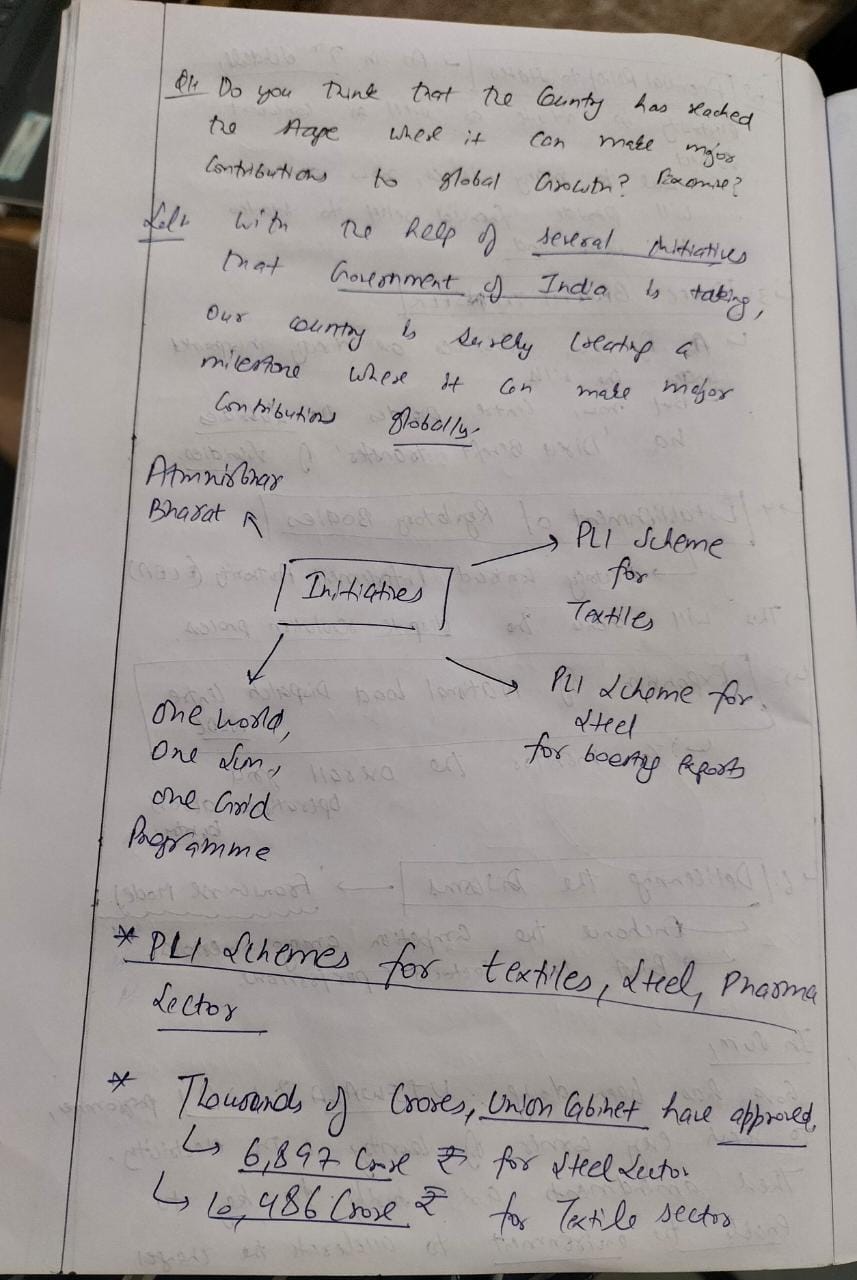 Q1. Do you think that the Country has reached
the stage where it can make major
Contributions to global Growth? Examine?
Sol: With the help of several initiatives
that Government of India is taking,
our country is surely creating a
milestone where it can make major
Contributions globally.
Atmnirbhar
Bharat
Initiatives
PLI Scheme
for
Textiles
One world,
One Sun,
One Grid
Programme
PLI Scheme for
Steel
for boosting exports
* PLI Schemes for textiles, Steel, Pharma
Sector
* Thousands of Crores, Union Cabinet have approved
↳ 6,897 Crore ₹ for Steel Sector
↳ 10,486 Crore ₹ for Textile sector